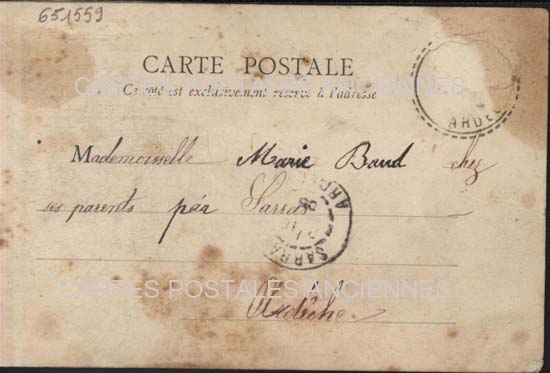 651559
CARTE POSTALE
Ce côté est exclusivement réservé à l'adresse
CARTES POSTALES ANCIENNES
ARDÈC
Mademoiselle Marie Baud chez
ses parents pár Sarras
SARRA
ARD
CARTES POSTALES ANCIENNES
Ardèche.